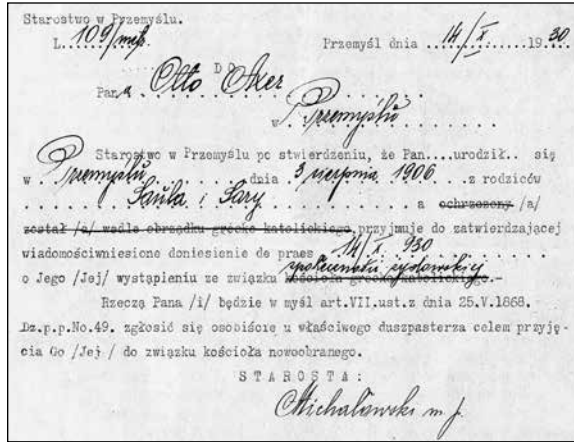 Starostwo w Przemyślu.
L. 109/mjb. Przemyśl dnia 14/X 1930
DO
Pana Otto Axer
w Przemyślu
Starostwo w Przemyślu po stwierdzeniu, że Pan....urodził.. się
w Przemyślu dnia 3 sierpnia 1906 z rodziców
Saula i Sary a ochrzczony /a/
został /a/ wedle obrządku grecko katolickiego, przyjmuje do zatwierdzającej
wiadomościwniesione doniesienie de praes 14/X 930
społeczności żydowskiej
o Jego /Jej/ wystąpieniu ze związku kościoła grecko katolickiego.-
Rzeczą Pana /i/ będzie w myśl art.VII.ust.z dnia 25.V.1868.
Dz.p.p.No.49. zgłosić się osobiście u właściwego duszpasterza celem przyję-
cia Go /Jej / do związku kościoła nowoobranego.
STAROSTA:
Michałowski m.p.